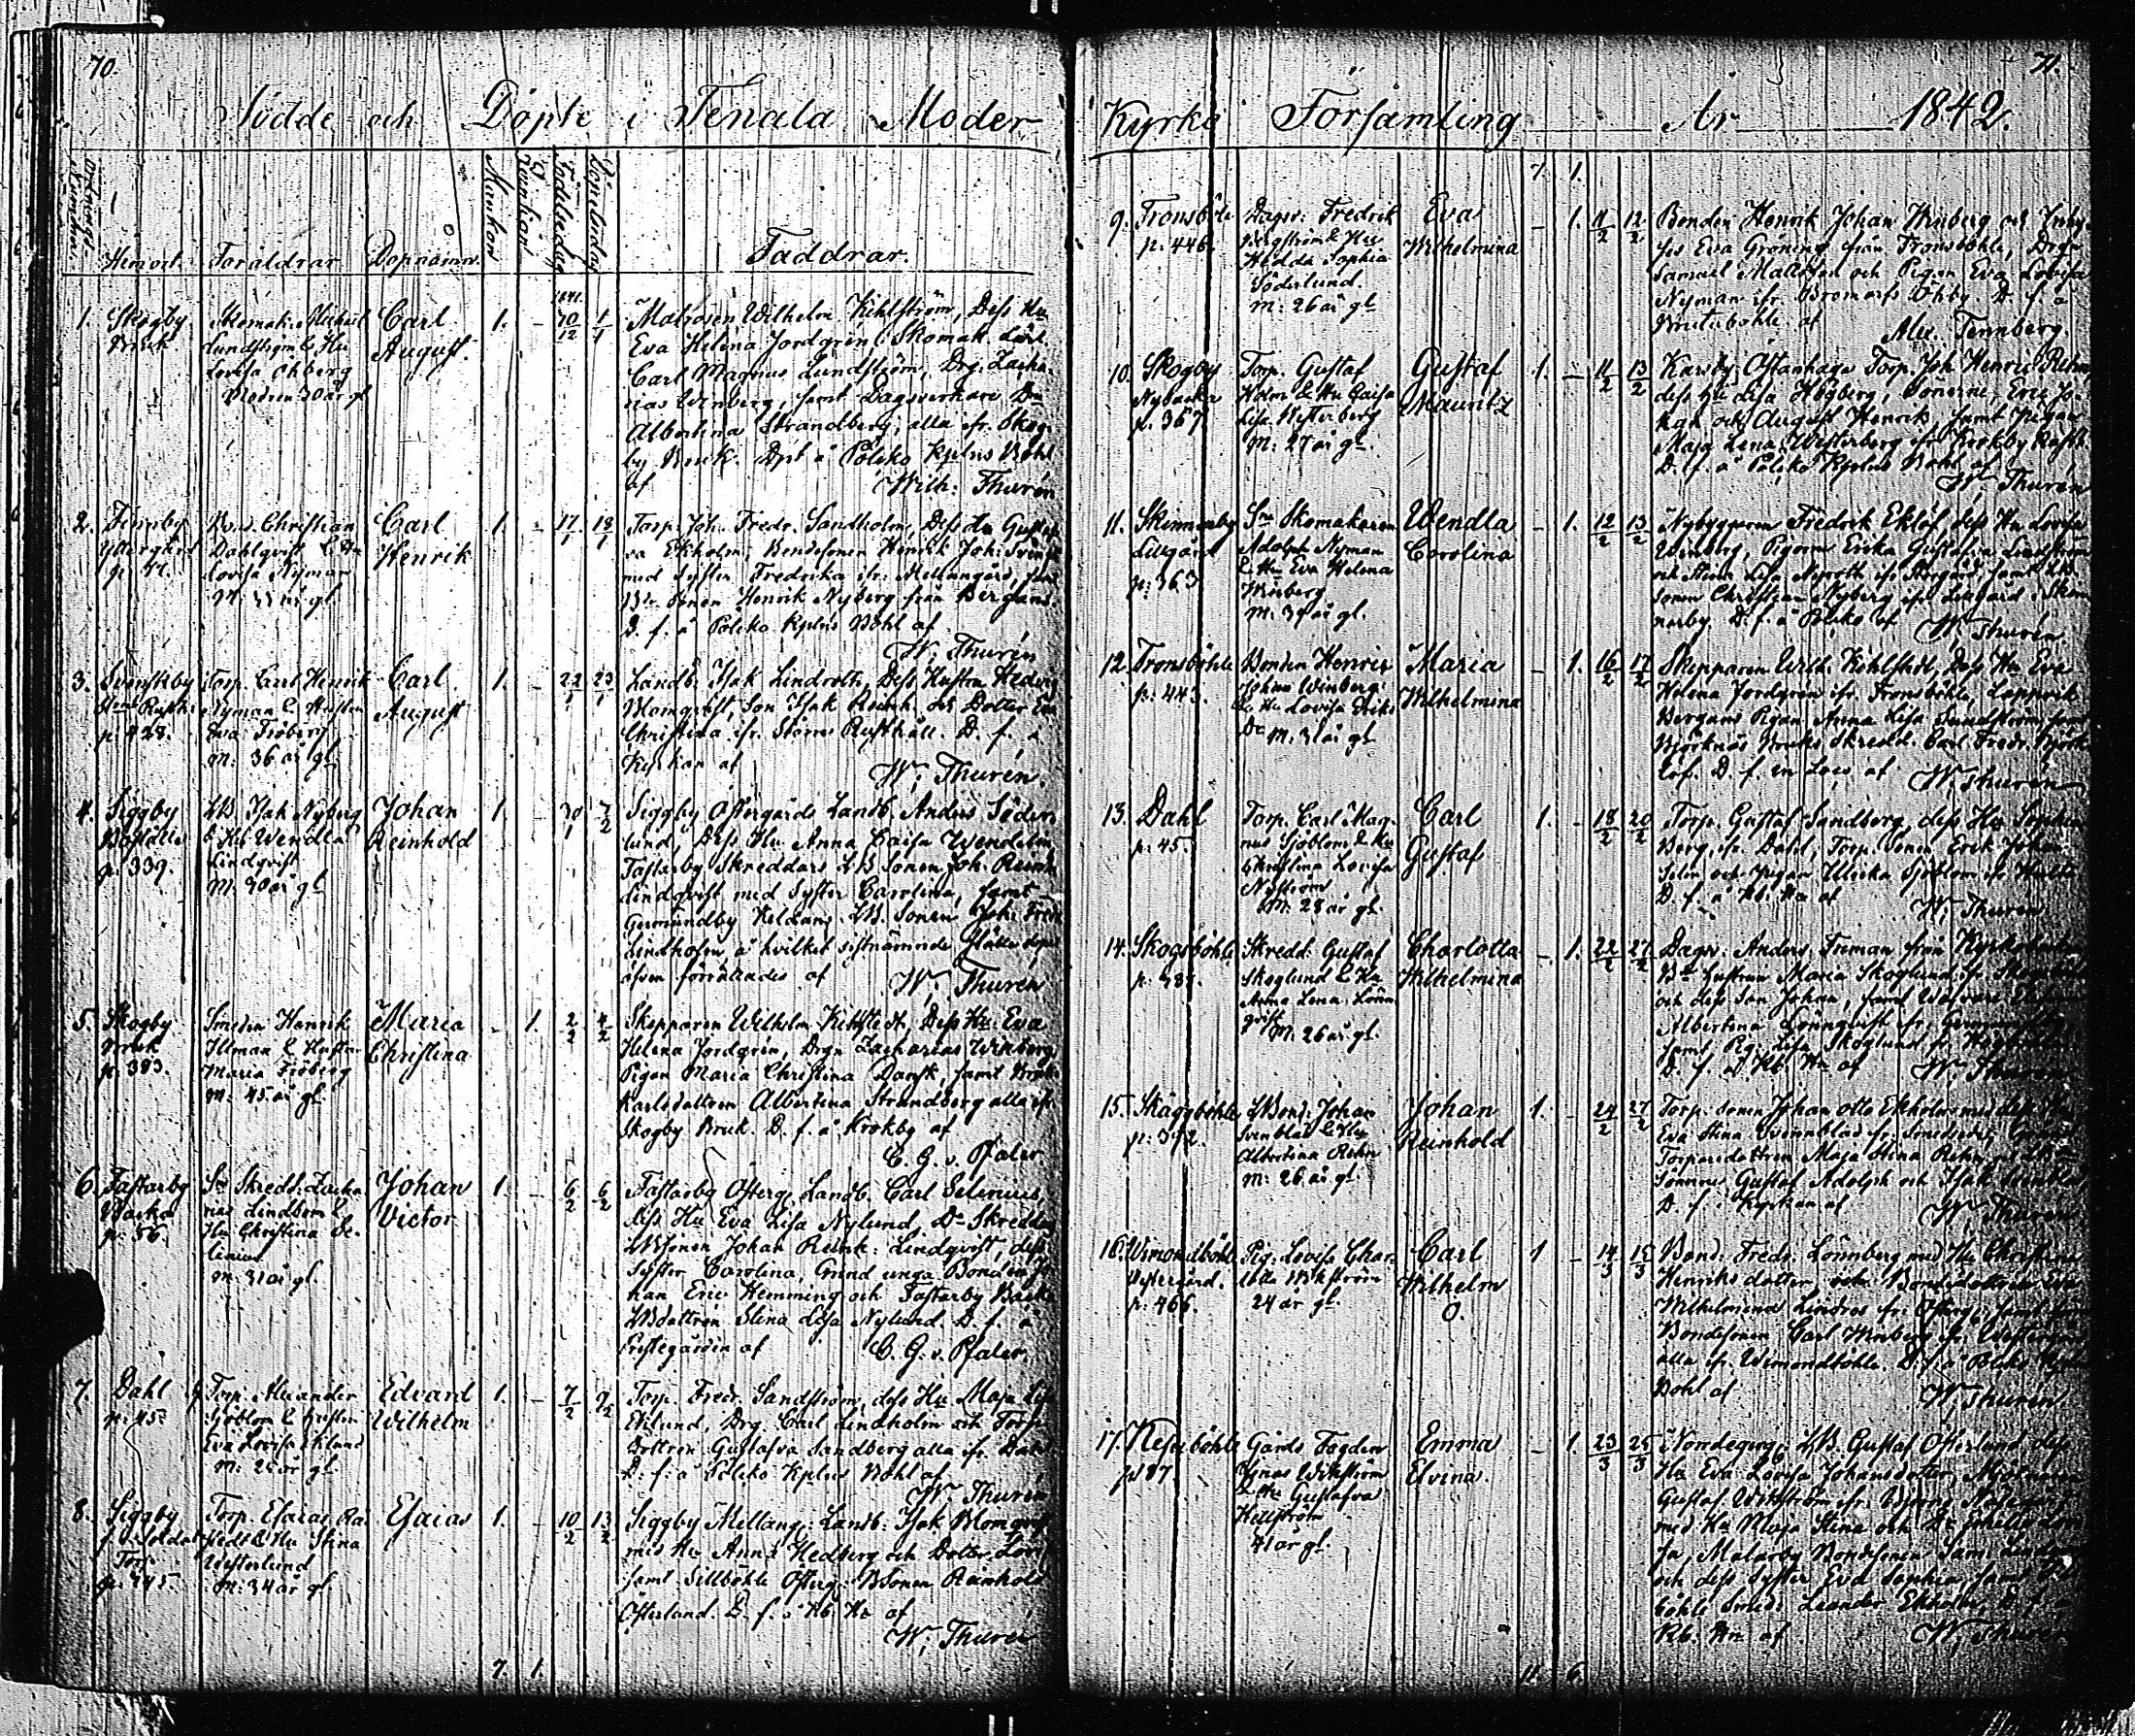 70.
Födde och Döpte i Tenala Moder
Hemort Föräldrar Dopnamn Mankön Qvinkön Födelsedag Döpelsedag
Faddrar.
1. Skogby Bruk
Skomak. Michael
Lundström & Hu
Lovisa Öhberg
Modren 30 år gl
Carl
August.
1. – 1841. 30/12 1/1
Matrosen Wilhelm Kihlström, Dess Hu
Eva Helena Jordgren, Skomak. Lärl.
Carl Magnus Lundström, Drg. Zacha-
rias Winberg, samt Dagsverkare Dn
Albertina Strandberg, alla ifr. Skog-
by Bruk. Dpt å Pojeko Kplns Bohl
af Wilh. Thurén
2. Finnby
p. 47.
Christian
Dahlqvist & Hu
Lovisa Nyman
Carl
Henrik
1. – 17/1 18/1
Torp. Joh. Fredr. Sandholm, Dess Hu Gustaf-
va Ekholm, Bondesonen Henrik Joh.
med Syster Fredrika ifr. Mellangård, samt
Sonen Henrik Nyberg från Bergans.
D. f. å Pojeko Kplns Bohl af
W. Thurén
3. Svenskby
p. 428.
Torp. Carl Henrik
Nyman & Hustru
Eva Fröberg
M: 36 år gl.
Carl
August
1. – 22/1 23/1
Landb. Isak Lindroth, Dess Hustru Hedvig
Blomqvist, Son Isak Reinh. och Dotter Eva
Christina ifr. Störres Rusthåll. D. f. i
Kyrkan af W. Thurén.
4. Siggby
Boställe
p. 339.
LB. Isak Nyberg
& Hu Wendla
Lindqvist
M. 30 år gl
Johan
Reinhold
1. – 30/1 2/2
Siggby Östergårds Landb. Anders Söder-
lund, Dess Hu Anna Caisa Wendelin,
Fastarby Skreddars LB Sonen Joh. Reinh.
Lindqvist med Syster Carolina, samt
Germundby Keldans LB. Sonen Joh. Fredr.
Lindholm å hvilket sistnämnde ställe dopet
äfven förrättades af W. Thurén
5. Skogby
Bruk
p. 383.
Smeden Henrik
Illman & Hustru
Maria Fröberg
M: 45 år gl.
Maria
Christina
– 1. 2/2 4/2
Skepparen Wilhelm Kihlstedt, Dess Hu Eva
Helena Jordgrén, Drgn Zacharias Winberg
Pigan Maria Christina Dansk, samt Bruks
Karlsdottren Albertina Strandberg alla ifr.
Skogby Bruk. D. f. å Krokby af
C. G. v. Pfaler.
6. Fastarby
Backa
p. 56.
Sn Skredd. Zacha-
rias Lindbom &
Hu Christina Se-
lenius
M: 31 år gl.
Johan
Victor
1. – 6/2 6/2
Fastarby Österg. Landb. Carl Selenius,
dess Hu Eva Lisa Nylund, Dn Skreddar
LBSonen Johan Reinh: Lindqvist, dess
Syster Carolina, Grind unga Bonden Jo-
han Eric Hemming och Fastarby Backa
LBdottren Stina Lisa Nylund. D. f. i
Prestegården af C. G. v. Pfaler.
7. Dahl
p. 45.
Torp. Alexander
Sjöblom & Hustru
Eva Lovisa Eklund
M: 26 år gl.
Edvard
Wilhelm
1. – 7/2 9/2
Torp. Fredr. Sandström, dess Hu Maja Lisa
Eklund, Drg Carl Lindholm och Torp.
Dottren Gustafva Sandberg alla ifr. Dahl
D. f. å Pojeko Kplns Bohl af
W. Thurén
8. Siggby
f. d. Soldat
Torp
p. 345.
Torp. Esaias
& Hu Stina
Westerlund
M: 34 år gl
Esaias
1. – 10/2 13/2
Siggby Mellang. Landb. Isak Blomqvist
med Hu Anna Hedberg och Dotter Lovisa
samt Sillböhle Österg. BSonen Reinhold
Österlund. D. f. i Kb. Hn af
W. Thurén
7. 1.
71.
Kyrko Församling År 1842.
7. 1.
9. Tronsböle
p. 446.
Dagsv: Fredrik
Bergström & Hu
Hedda Sophia
Söderlund.
M: 26 år gl
Eva
Wilhelmina
– 1. 11/2 12/2
Bonden Henrik Johan Winberg och Inhy-
ses Eva Gröning från Tronsböhle, Drgn
Samuel Mattsson och Pigan Eva Lovisa
Nyman ifr. Bromarfs Öhby. D. f. å
af Alex. Tennberg.
10. Skogby
Nybacka
p. 367
Torp. Gustaf
Holm & Hu Caisa
Lisa Westerberg
M: 27 år gl.
Gustaf
Mauritz
1. – 11/2 13/2
Karsby Östanhaga Torp. Joh. Henric Rehn
dess Hu Lisa Högberg, Sönerne, Eric Jo-
han och August Henrik samt Pigan
Maja Lena Westerberg ifr. Krokby Rusth.
D. f. å Pojeko Kplns Bohl af
W. Thurén
11. Skinnarby
Lillgård
p: 363
Sn Skomakaren
Adolph Nyman
& Hu Eva Helena
Winberg
M: 39 år gl.
Wendla
Carolina
– 1. 12/2 13/2
Nybyggaren Fredrik Eklöf, dess Hu Lovisa
Winberg, Pigorne Erika Gustafva Lindström
och Stina Lisa Nyroth ifr. Storgård samt LB
Sonen Christian Nyberg ifr. Lillgård i Skin-
narby D. f. å Pojeko af W. Thurén
12. Tronsböhle
p: 443.
Bonden Henric
Johan Winberg
& Hu Lovisa Eriks
Dr M: 31 år gl
Maria
Wilhelmina
– 1. 16/2 17/2
Skepparen Wilh. Kihlstedt, dess Hu Eva
Helena Jordgrén ifr. Tronsböhle, Lappvik
Bergans Pigan Anna Lisa Sundström, samt
Björknäs Bruks Skredd. Carl Fredr. Björk-
löf. D. f. in Loco af W. Thurén
13. Dahl
p: 45.
Torp. Carl Mag-
nus Sjöblom & Hu
Christina Lovisa
Nyström
M: 28 år gl.
Carl
Gustaf
1. – 18/2 20/2
Torp. Gustaf Sandberg, dess Hu Sophia
Berg, ifr. Dahl, Torp. Sonen Erik Johan
Selin och Pigan Ulrika Sjöblom ifr. Hulta
D. f. i Kb. Hn af W. Thurén
14. Skogsböhle
p. 387.
Skredd: Gustaf
Skoglund & Hu
Anna Lena Lönn-
qvist
M: 26 år gl.
Charlotta
Wilhelmina
– 1. 22/2 27/2
Dagsv: Anders Friman från Kyrkobacken
Bde Hustrun Maria Skoglund, ifr. Skogsböhle
och dess Son Johan, samt
Albertina Lönnqvist fr.
samt Pig. Lisa Skoglund fr.
D. f. i Kb. Hn af W. Thurén
15. Skäggböhle
p: 392.
LBond: Johan
Svenblad & Hu
Albertina Rehn
M: 26 år gl.
Johan
Reinhold
1. – 24/2 27/2
Torp. Sonen Johan Otto Ekholm med dess Hu
Eva Stina Svennblad fr. Smedsede,
Torparedottren Maja Stina Rehn och LB
Sönerne Gustaf Adolph och Isak Svenblad
D. f. i Kyrkan af W. Thurén
16. Wimondböhle
Westergård.
p. 466.
Pig: Lovisa Char-
lotta Wikström
24 år gl.
Carl
Wilhelm
O.
1 – 14/3 15/3
Bond: Fredr. Lönnberg med Hu Christina
Henriksdotter och Bondedottren Eva
Wilhelmina Lindros fr. Österg. samt
Bondesonen Carl Winberg ifr. Westergård
alla ifr. Wimondböhle. D. f. å Pojeko Kplns
Bohl af W. Thurén
17. Neseböhle
p. 87.
Gårds Fogden
Jonas Wikström
& Hu Gustafva
Hellström
41 år gl.
Emma
Elvina.
– 1. 23/3 25/3
Norrdegerg. LB. Gustaf Österlund dess
Hu Eva Lovisa Johansdotter, Mjölnaren
Gustaf Wikström ifr.
med Hu Maja Stina och
Malarby Bondesonen
och dess Syster Eva Sophia samt
böhle Smed: Leander Ekholm. D. f. i
Kb. Hn af W. Thurén
11. 6.